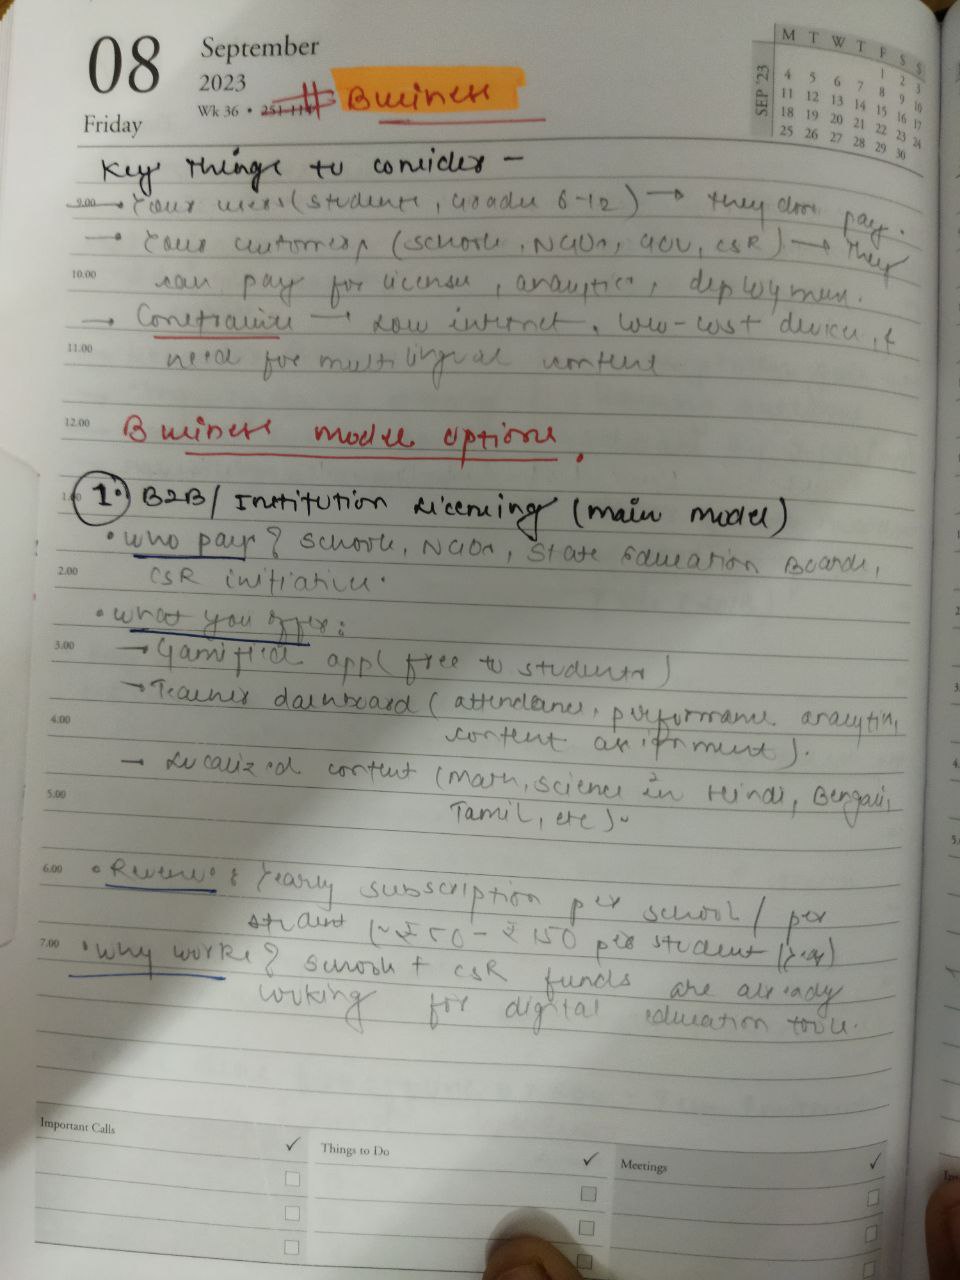 08
September
2023
Wk 36 •
Friday
# Business
SEP '23
M T W T F S S
1 2 3
4 5 6 7 8 9 10
11 12 13 14 15 16 17
18 19 20 21 22 23 24
25 26 27 28 29 30
Key Things to consider -
9.00 → Your users (students, Grades 6-12) → they don't pay.
→ Your customers (schools, NGOs, GOV, CSR) → They
10.00 can pay for license, analytics, deployment.
→ Constraints → Low internet, low-cost devices, &
11.00 need for multilingual content
12.00 Business model options.
1. B2B/ Institution Licensing (main model)
• who pays? schools, NGOs, State Education Boards,
2.00 CSR initiative.
• what you offer:
3.00 → Gamified app (free to students)
→ Teacher dashboard (attendance, performance analytics,
4.00 content assignment).
→ Localized content (Math, science in Hindi, Bengali,
5.00 Tamil, etc).
6.00 • Revenue: Yearly subscription per school / per
student (~₹50 - ₹150 per student/year)
7.00 • why works? schools + CSR funds are already
working for digital education tools.
Important Calls ✓
Things to Do ✓
Meetings ✓